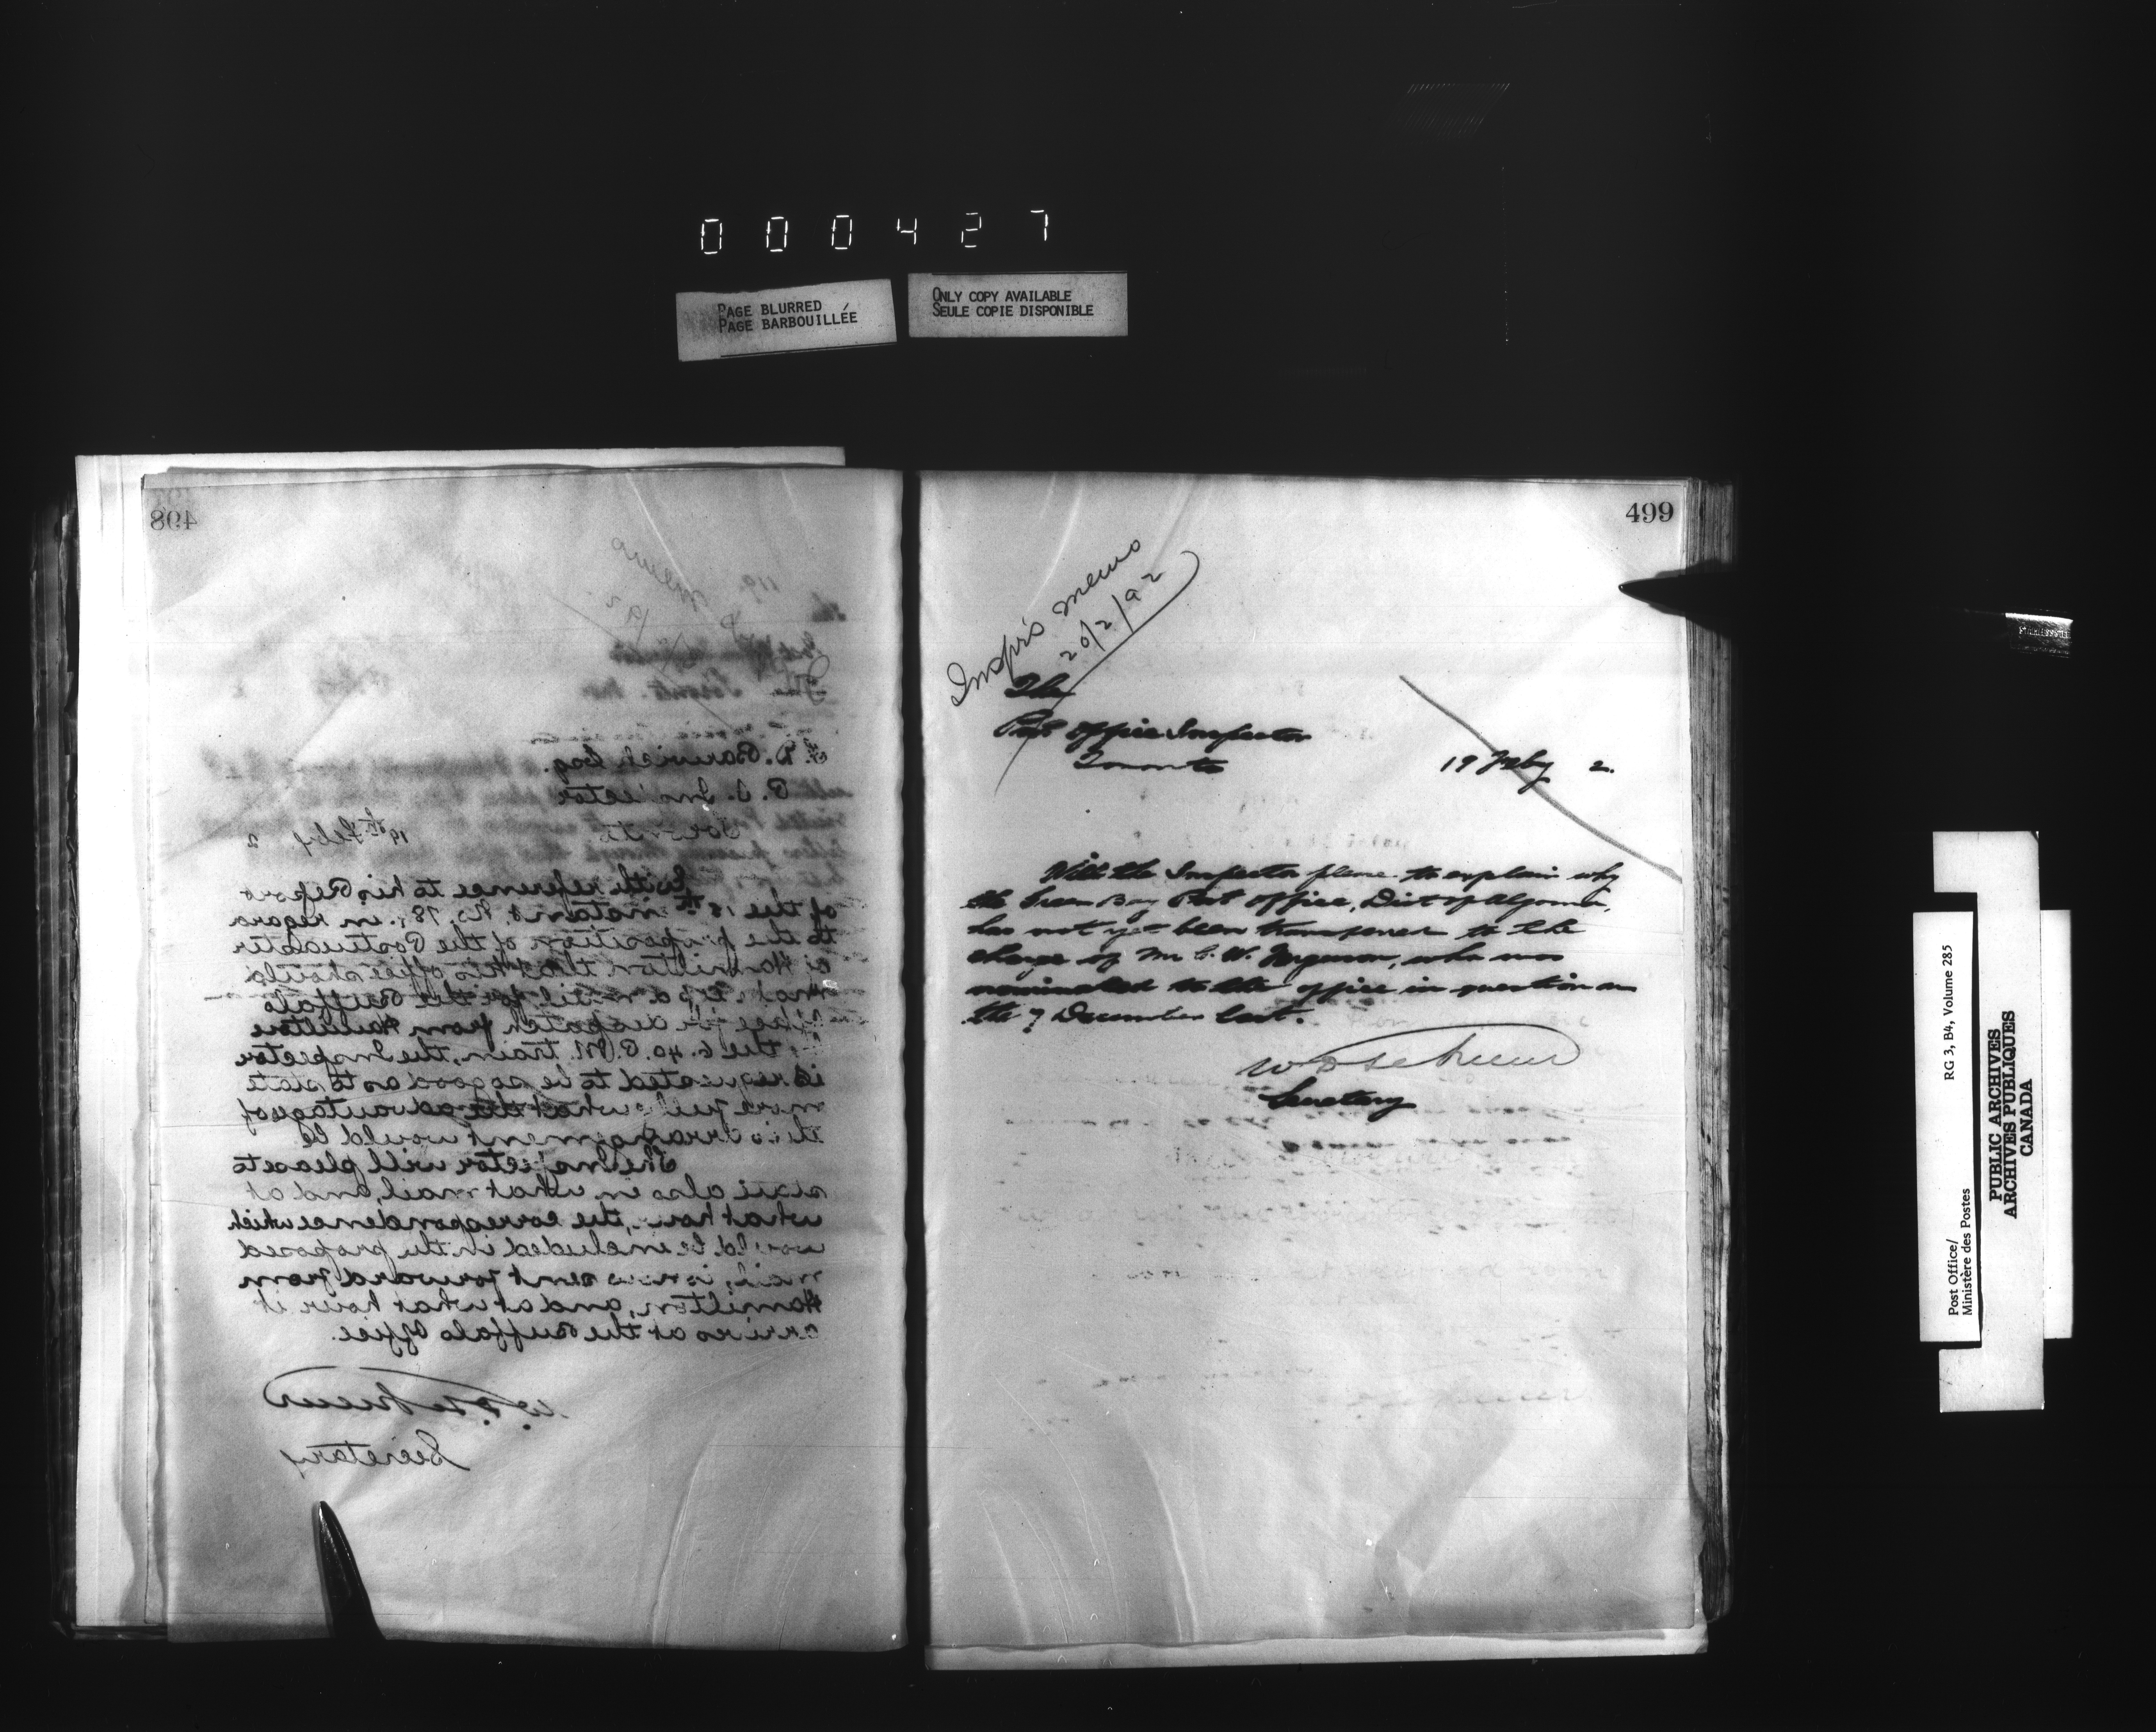 000427
PAGE BLURRED
PAGE BARBOUILLÉE
ONLY COPY AVAILABLE
SEULE COPIE DISPONIBLE
498
F. D. Barwick Esq.
P. O. Inspector
Toronto
19th Feby 2
With reference to his Report
of the 18th instant, No. 78, in regard
to the proposition of the Postmaster
of Hamilton that his office should
make up a mail for the Buffalo
Office for despatch from Hamilton
the 6.40 P.M. train, the Inspector
is requested to be so good as to state
more fully what the advantages of
this arrangement would be.
The Inspector will please to
state also in what mail, and at
what hour, the correspondence which
would be included in the proposed
mail, is now sent forward from
Hamilton, and at what hour it
arrives at the Buffalo Office.
W. D. LeSueur
Secretary
499
Inspr's memo
20/2/92
The
Post Office Inspector
Toronto
19 Feby 2.
Will the Inspector please to explain why
the Green Bay Post Office, Dist of Algoma,
has not yet been transferred to the
charge of Mr. C. W. Ferguson, who was
nominated to the office in question on
the 7 December last.
W D LeSueur
Secretary
Post Office/
Ministère des Postes
RG 3, B4, Volume 285
PUBLIC ARCHIVES
ARCHIVES PUBLIQUES
CANADA